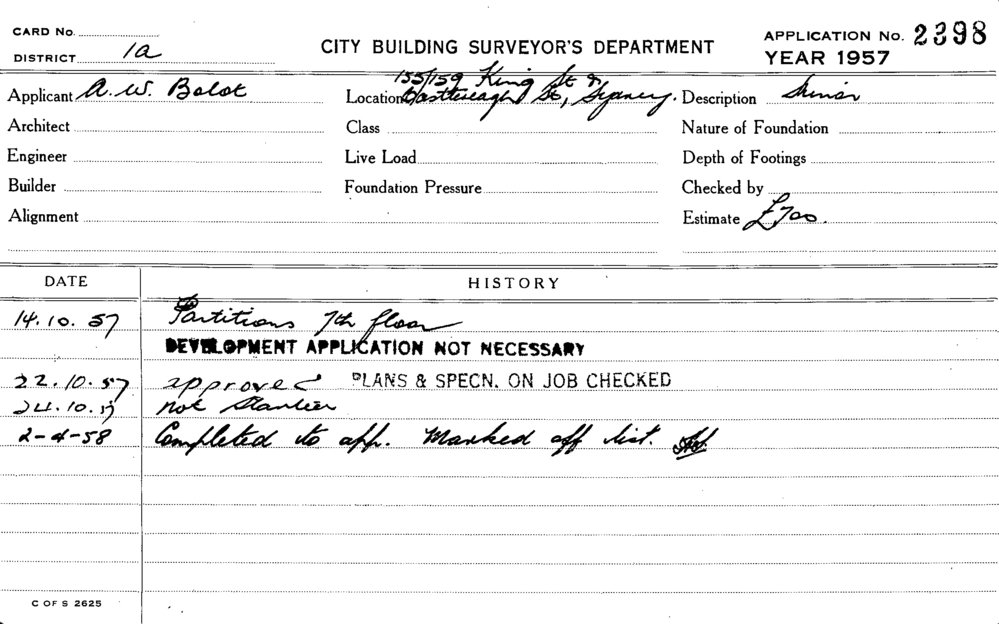 CARD No.
DISTRICT 1a
CITY BUILDING SURVEYOR'S DEPARTMENT
APPLICATION No. 2398
YEAR 1957
Applicant A. W. Balot
Location 155/159 King St &
Castlereagh St, Sydney.
Description Minor
Architect
Class
Nature of Foundation
Engineer
Live Load
Depth of Footings
Builder
Foundation Pressure
Checked by
Alignment
Estimate £700.
DATE HISTORY
14.10.57 Partitions 7th floor
DEVELOPMENT APPLICATION NOT NECESSARY
22.10.57 approved PLANS & SPECN. ON JOB CHECKED
24.10.57 not started
2-4-58 Completed to app. Marked off list.
C OF S 2625